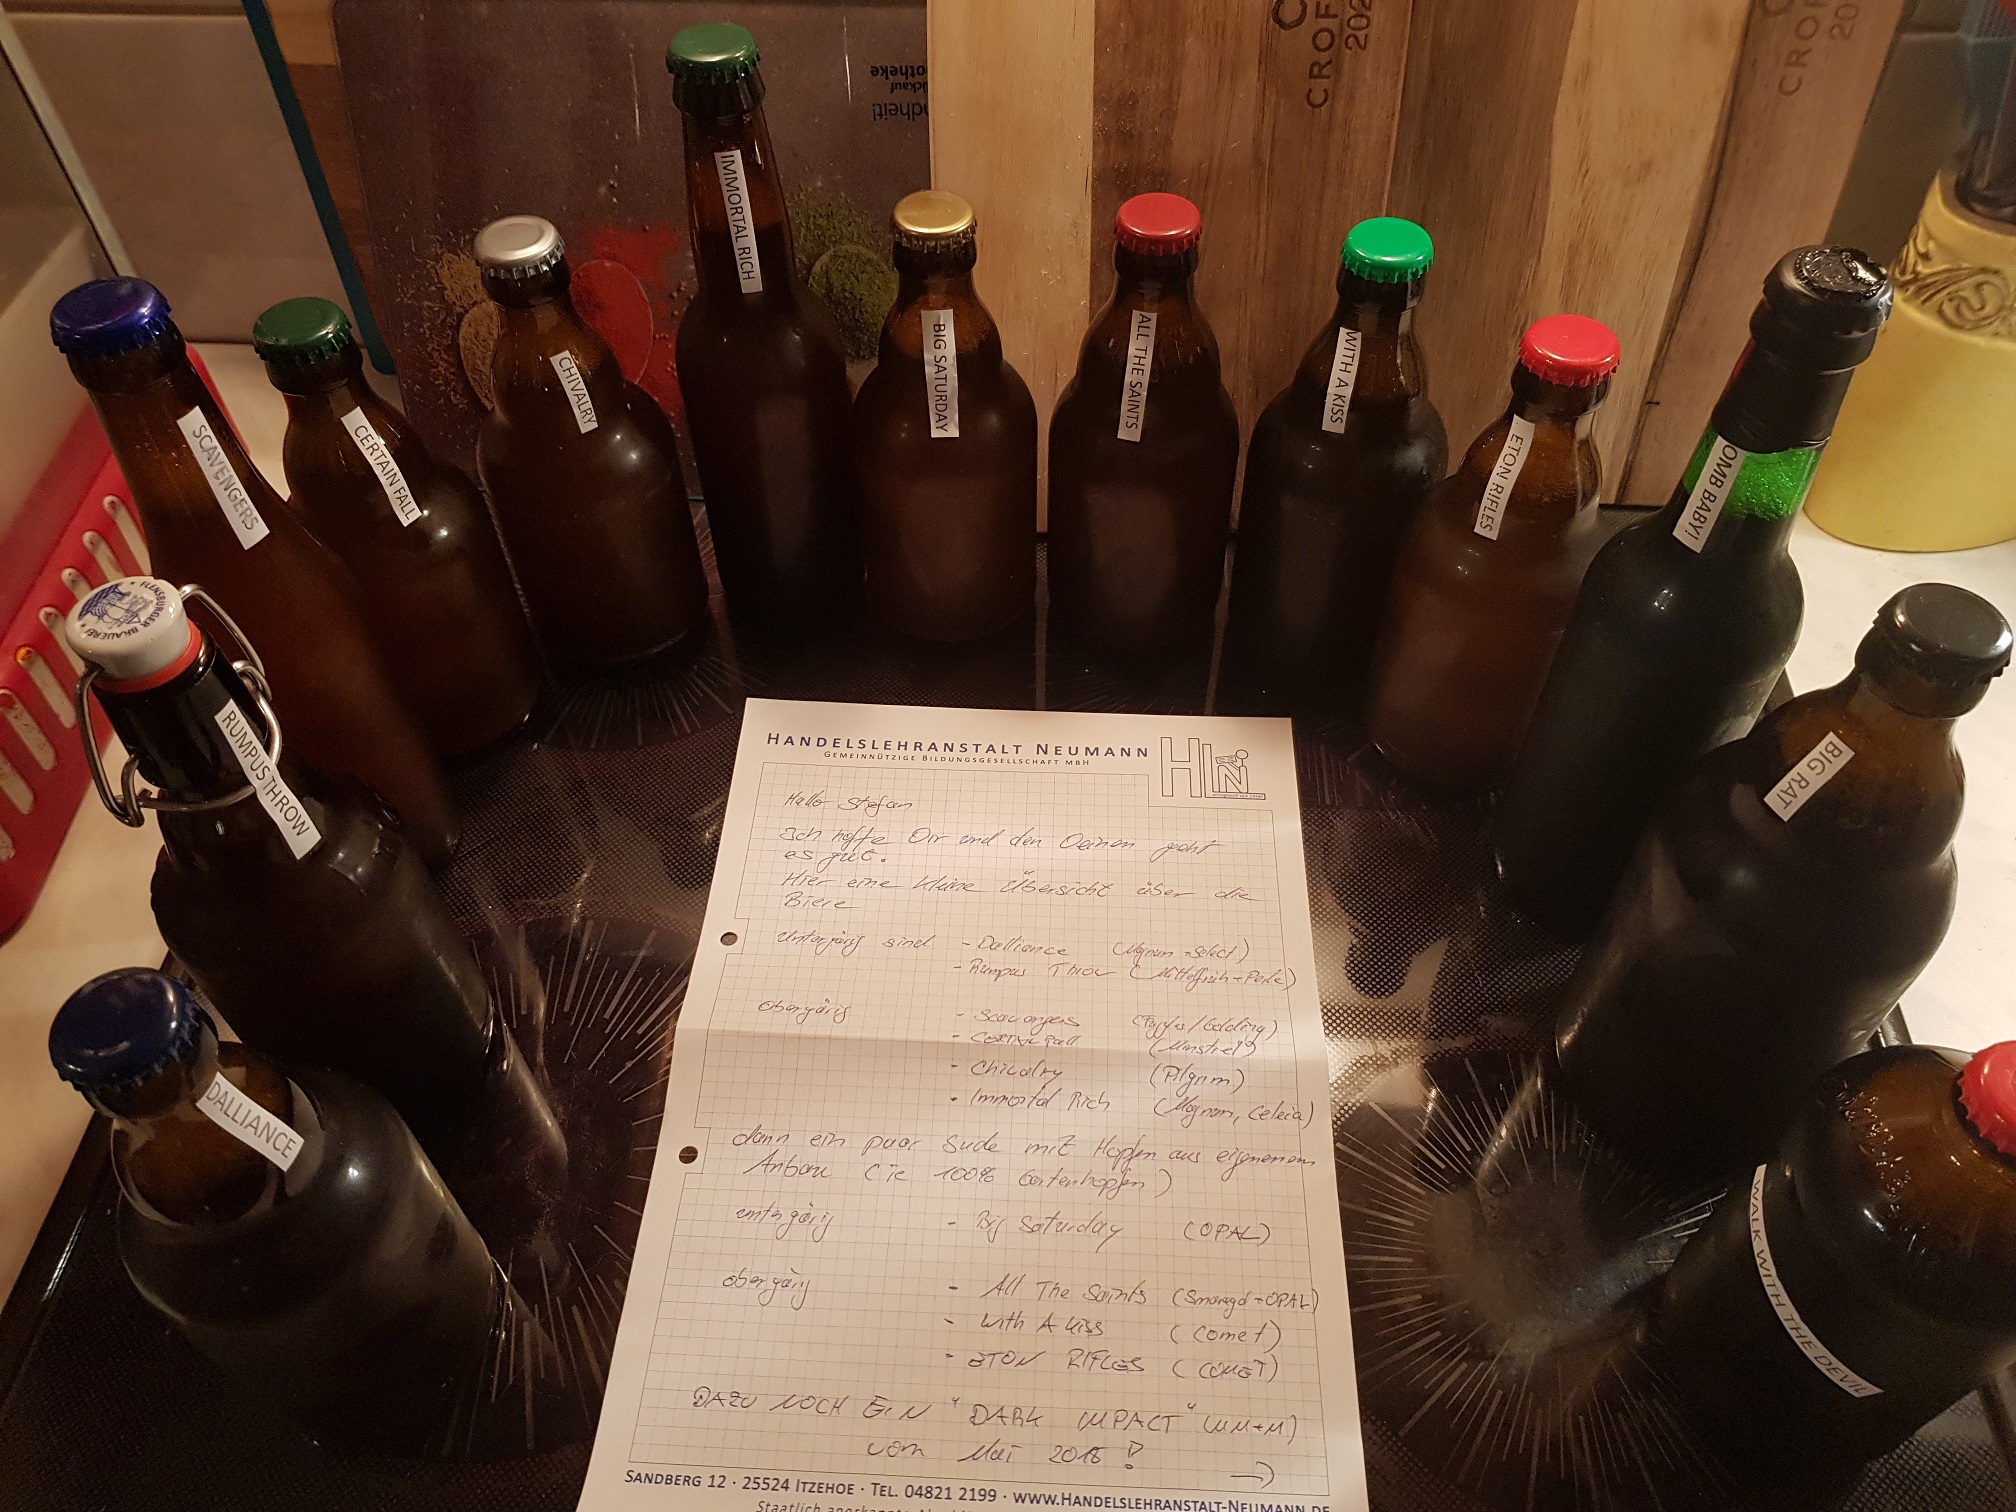 C
CROF
202
CROF
20
otheke
ckauf
ndheit!
IMMORTAL RICH
BIG SATURDAY
ALL THE SAINTS
WITH A KISS
CHIVALRY
ETON RIFLES
CERTAIN FALL
SCAVENGERS
OMB BABY!
FLENSBURGER BRAUEREI
RUMPUS THROW
BIG RAT
DALLIANCE
WALK WITH THE DEVIL
HANDELSLEHRANSTALT NEUMANN
GEMEINNÜTZIGE BILDUNGSGESELLSCHAFT MBH
HLN
Hallo Stefan
Ich hoffe Dir und den Deinen geht
es gut.
Hier eine kleine Übersicht über die
Biere
Untergärig sind - Dalliance (Magnum + Select)
- Rumpus Throw (Mittelfrüh + Perle)
obergärig - Scavengers (Fuggles/Golding)
- CERTAIN Fall (Minstrel)
- Chivalry (Pilgrim)
- Immortal Rich (Magnum, Celeia)
dann ein paar Sude mit Hopfen aus eigenem
Anbau (ie 100% Gartenhopfen)
untergärig - Big Saturday (OPAL)
obergärig - All The Saints (Smaragd + OPAL)
- With A Kiss (Comet)
- ETON RIFLES (COMET)
DAZU NOCH EIN "DARK IMPACT"
vom Mai 2018 !
→
SANDBERG 12 · 25524 ITZEHOE · TEL. 04821 2199 · WWW.HANDELSLEHRANSTALT-NEUMANN.DE